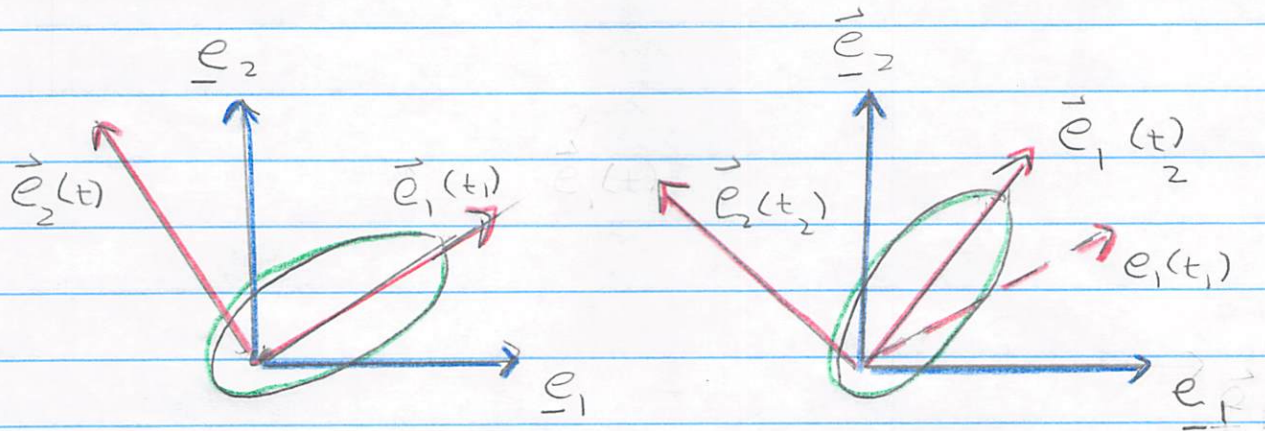 e̲₂
e⃗₂(t)
e⃗₁(t₁)
e̲₁
e̲⃗₂
e⃗₁(t)₂
e⃗₂(t₂)
e₁(t₁)
e̲⃗₁